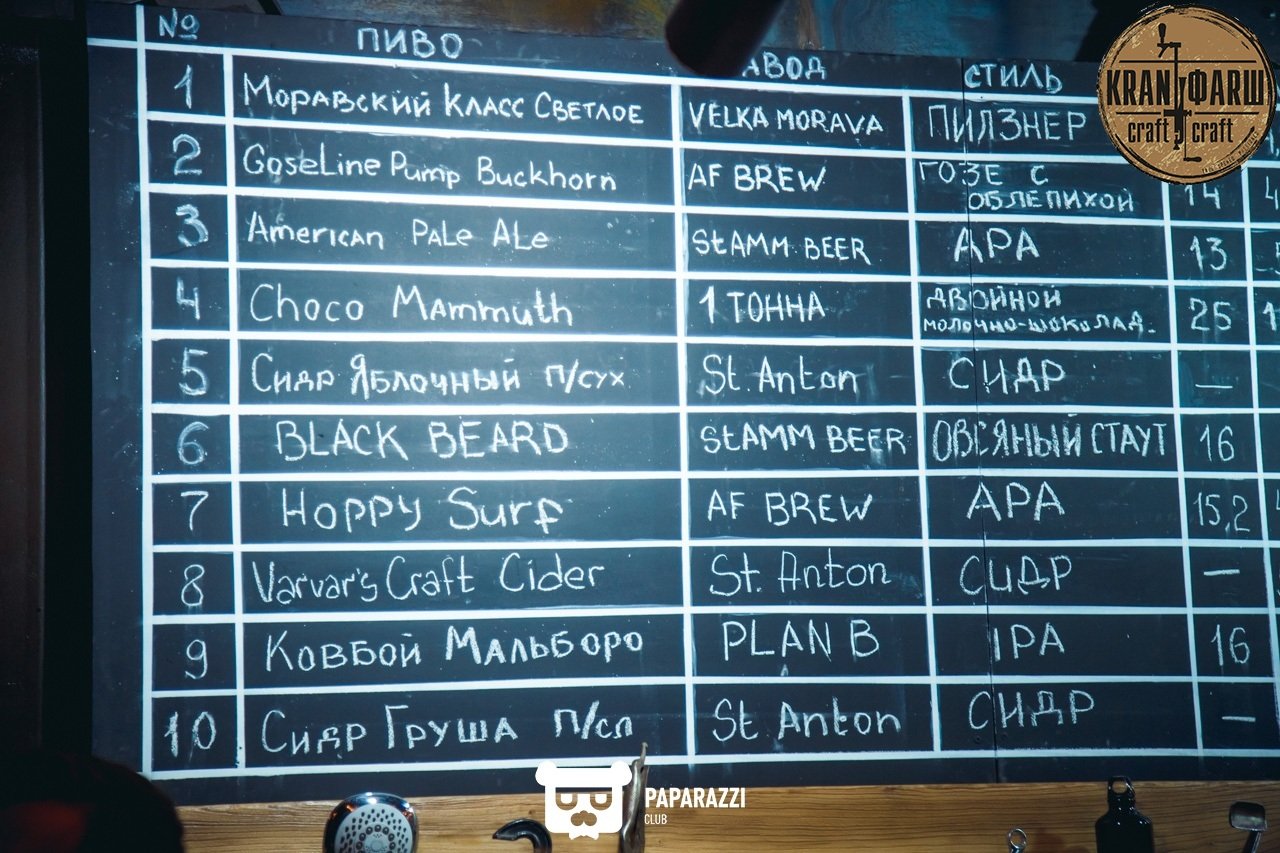 № ПИВО АВОД СТИЛЬ
1 Моравский Класс Светлое VELKA MORAVA ПИЛЗНЕР
2 GoseLine Pump Buckhorn AF BREW ГОЗЕ С
ОБЛЕПИХОЙ 14 4
3 American Pale Ale StAMM BEER APA 13
4 Choco Mammuth 1 ТОННА ДВОЙНОЙ
МОЛОЧНО-ШОКОЛАД. 25 1
5 Сидр Яблочный п/сух St. Anton СИДР —
6 BLACK BEARD StAMM BEER ОВСЯНЫЙ СТАУТ 16
7 Hoppy Surf AF BREW APA 15,2
8 Varvar's Craft Cider St. Anton СИДР —
9 Ковбой Мальборо PLAN B IPA 16
10 Сидр Груша п/сл St Anton СИДР —
KRAN ФАРШ
craft craft
PAPARAZZI
CLUB